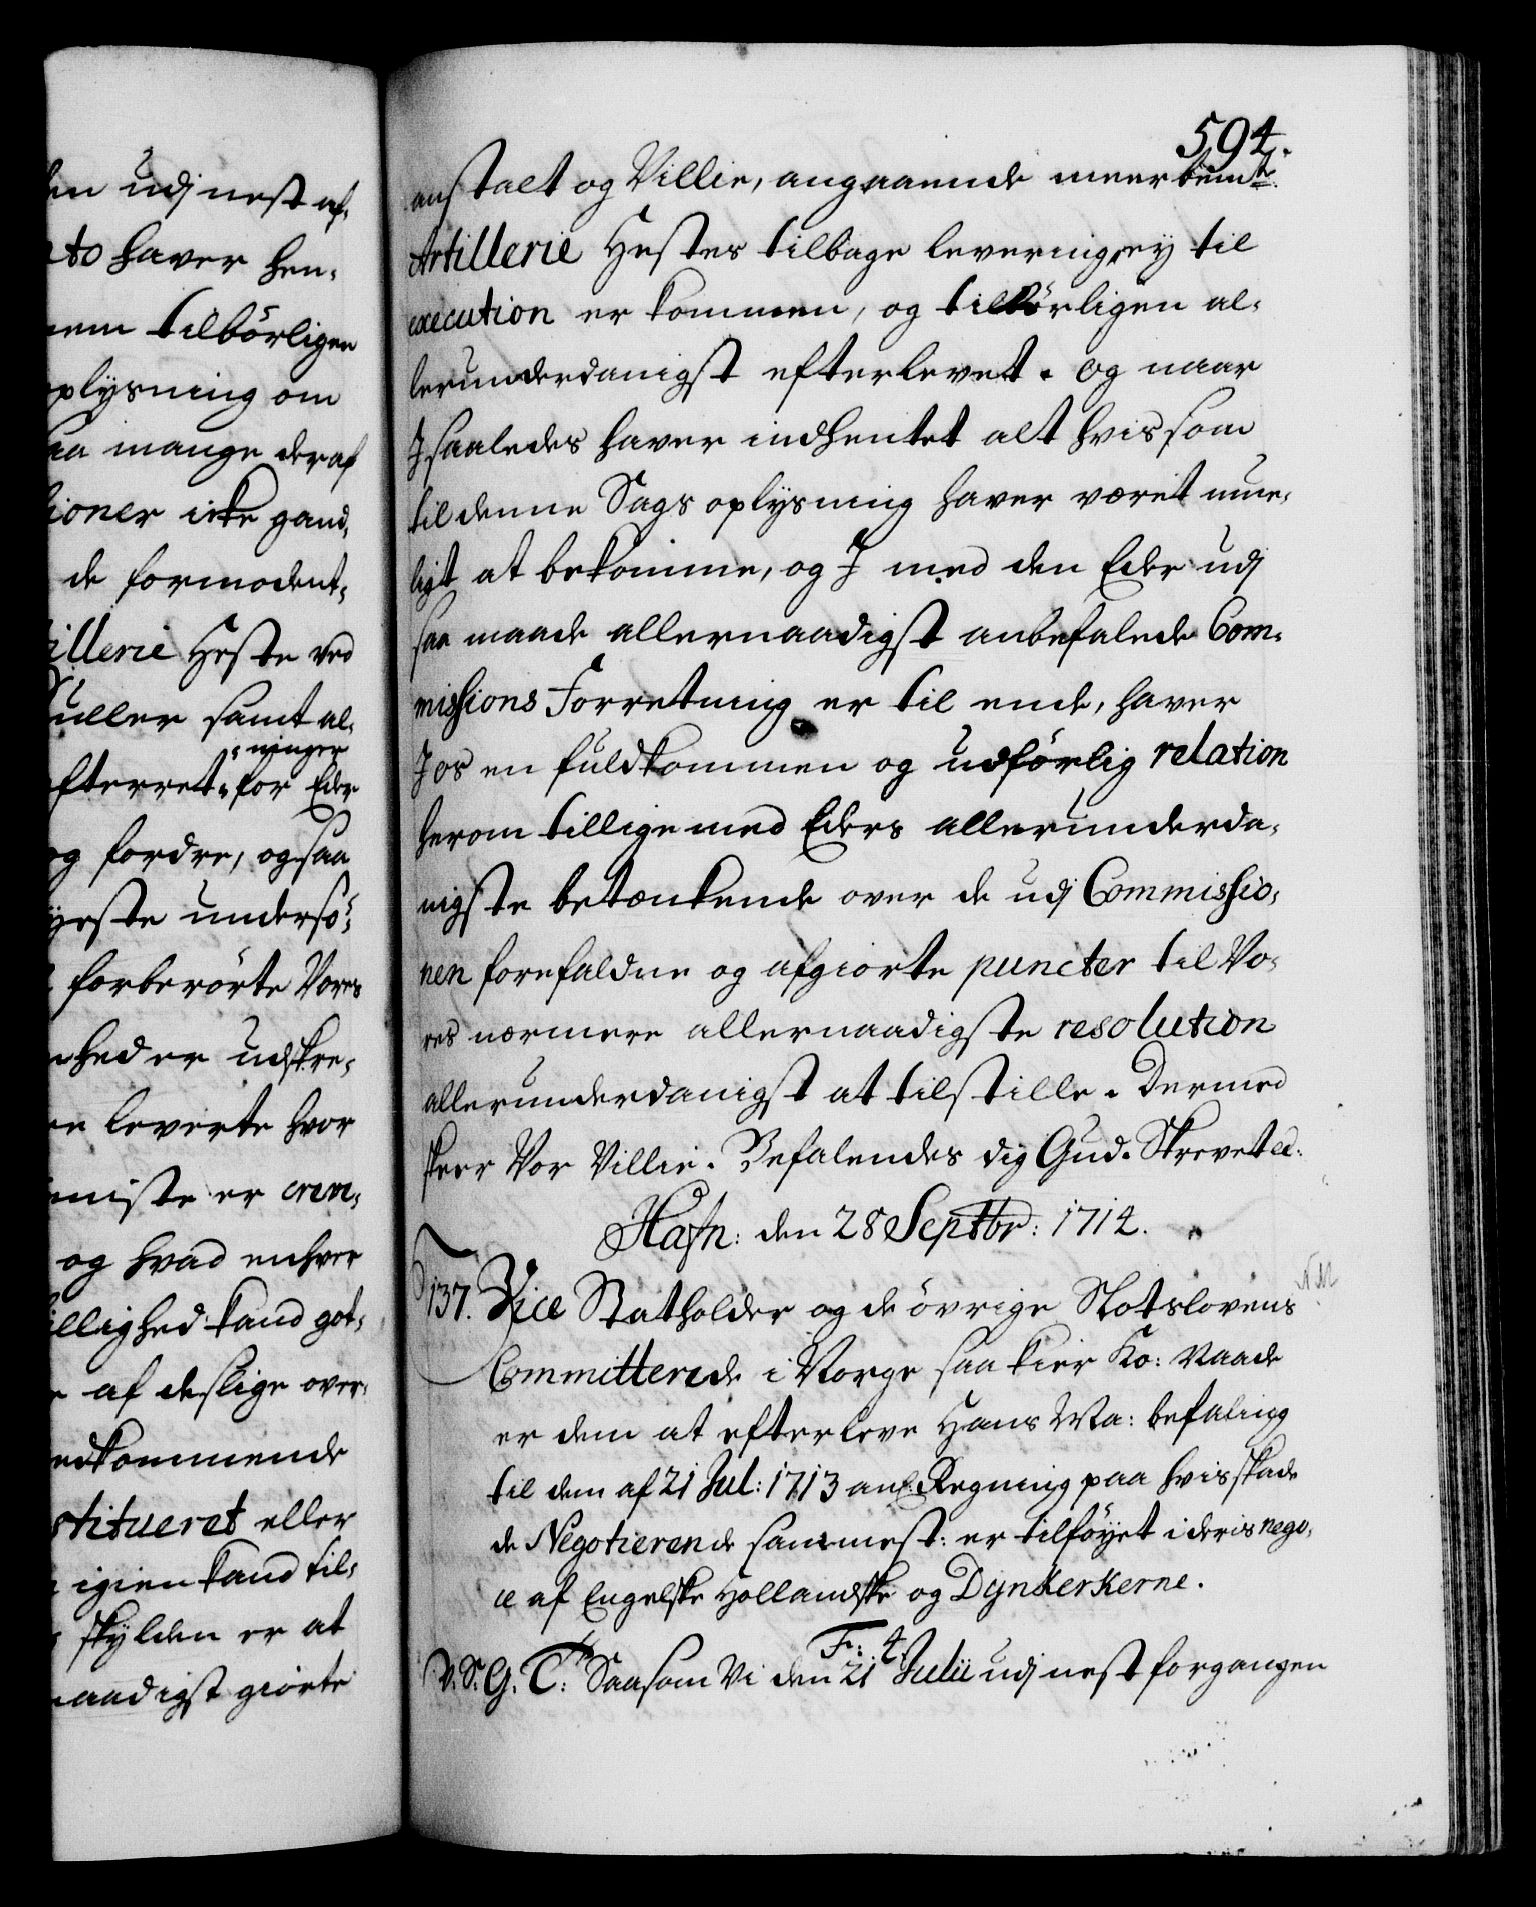 en udj nest af-
to haver hen-
nem tilbörligen
plysning om
aa mange deraf
ioner icke gand-
de formodent-
illerie Heste ved
uller samt al-
ninger
fterret- for Eder
og fordre, og saa
yeste undersö-
forberörte Vores
hed er udskre-
leverte hvor
miste er creve-
og hvad enhver
llighed kand got-
af deslige over-
edkommende
stitueret eller
igien kand til-
skylden er at
naadigst giorte
594.
anstalt og Villie, angaaende meerbemte.
Artillerie Hestes tilbage levering, ey til
execution er kommen, og tilbörligen al-
lerunderdanigst efterlevet. og naar
I saaledes haver indhentet alt hvis som
til denne Sags oplysning haver været mue-
ligt at bekomme, og I med den Eder udj
saa maade allernaadigst anbefalede Com-
missions Forretning er til ende, haver
I os en fuldkommen og udförlig relation
herom tillige med Eders allerunderda-
nigste betænkende over de udj Commissio-
nen forefaldne og afgiorte puncter til Vo-
res nærmere allernaadigste resolution
allerunderdanigst at tilstille. Dermed
skeer Vor Villie. Befalendes dig Gud. Skrevet ec.
Hafn: den 28 Septbr: 1714.
137. Vice Statholder og de övrige Slotslovens
N M
Committerede i Norge saa kier Ko: Naade
er dem at efterleve Hans Ma: befaling
til dem af 21 Jul: 1713 anl. Regning paa hvis skade
de Negotierende sammest: er tilföyet i deris nego-
ce af Engelske Hollandske og Dynkerkerne.
F: 4.
V. S. G. T: Saasom Vi den 21 Julii udj nest forgangen